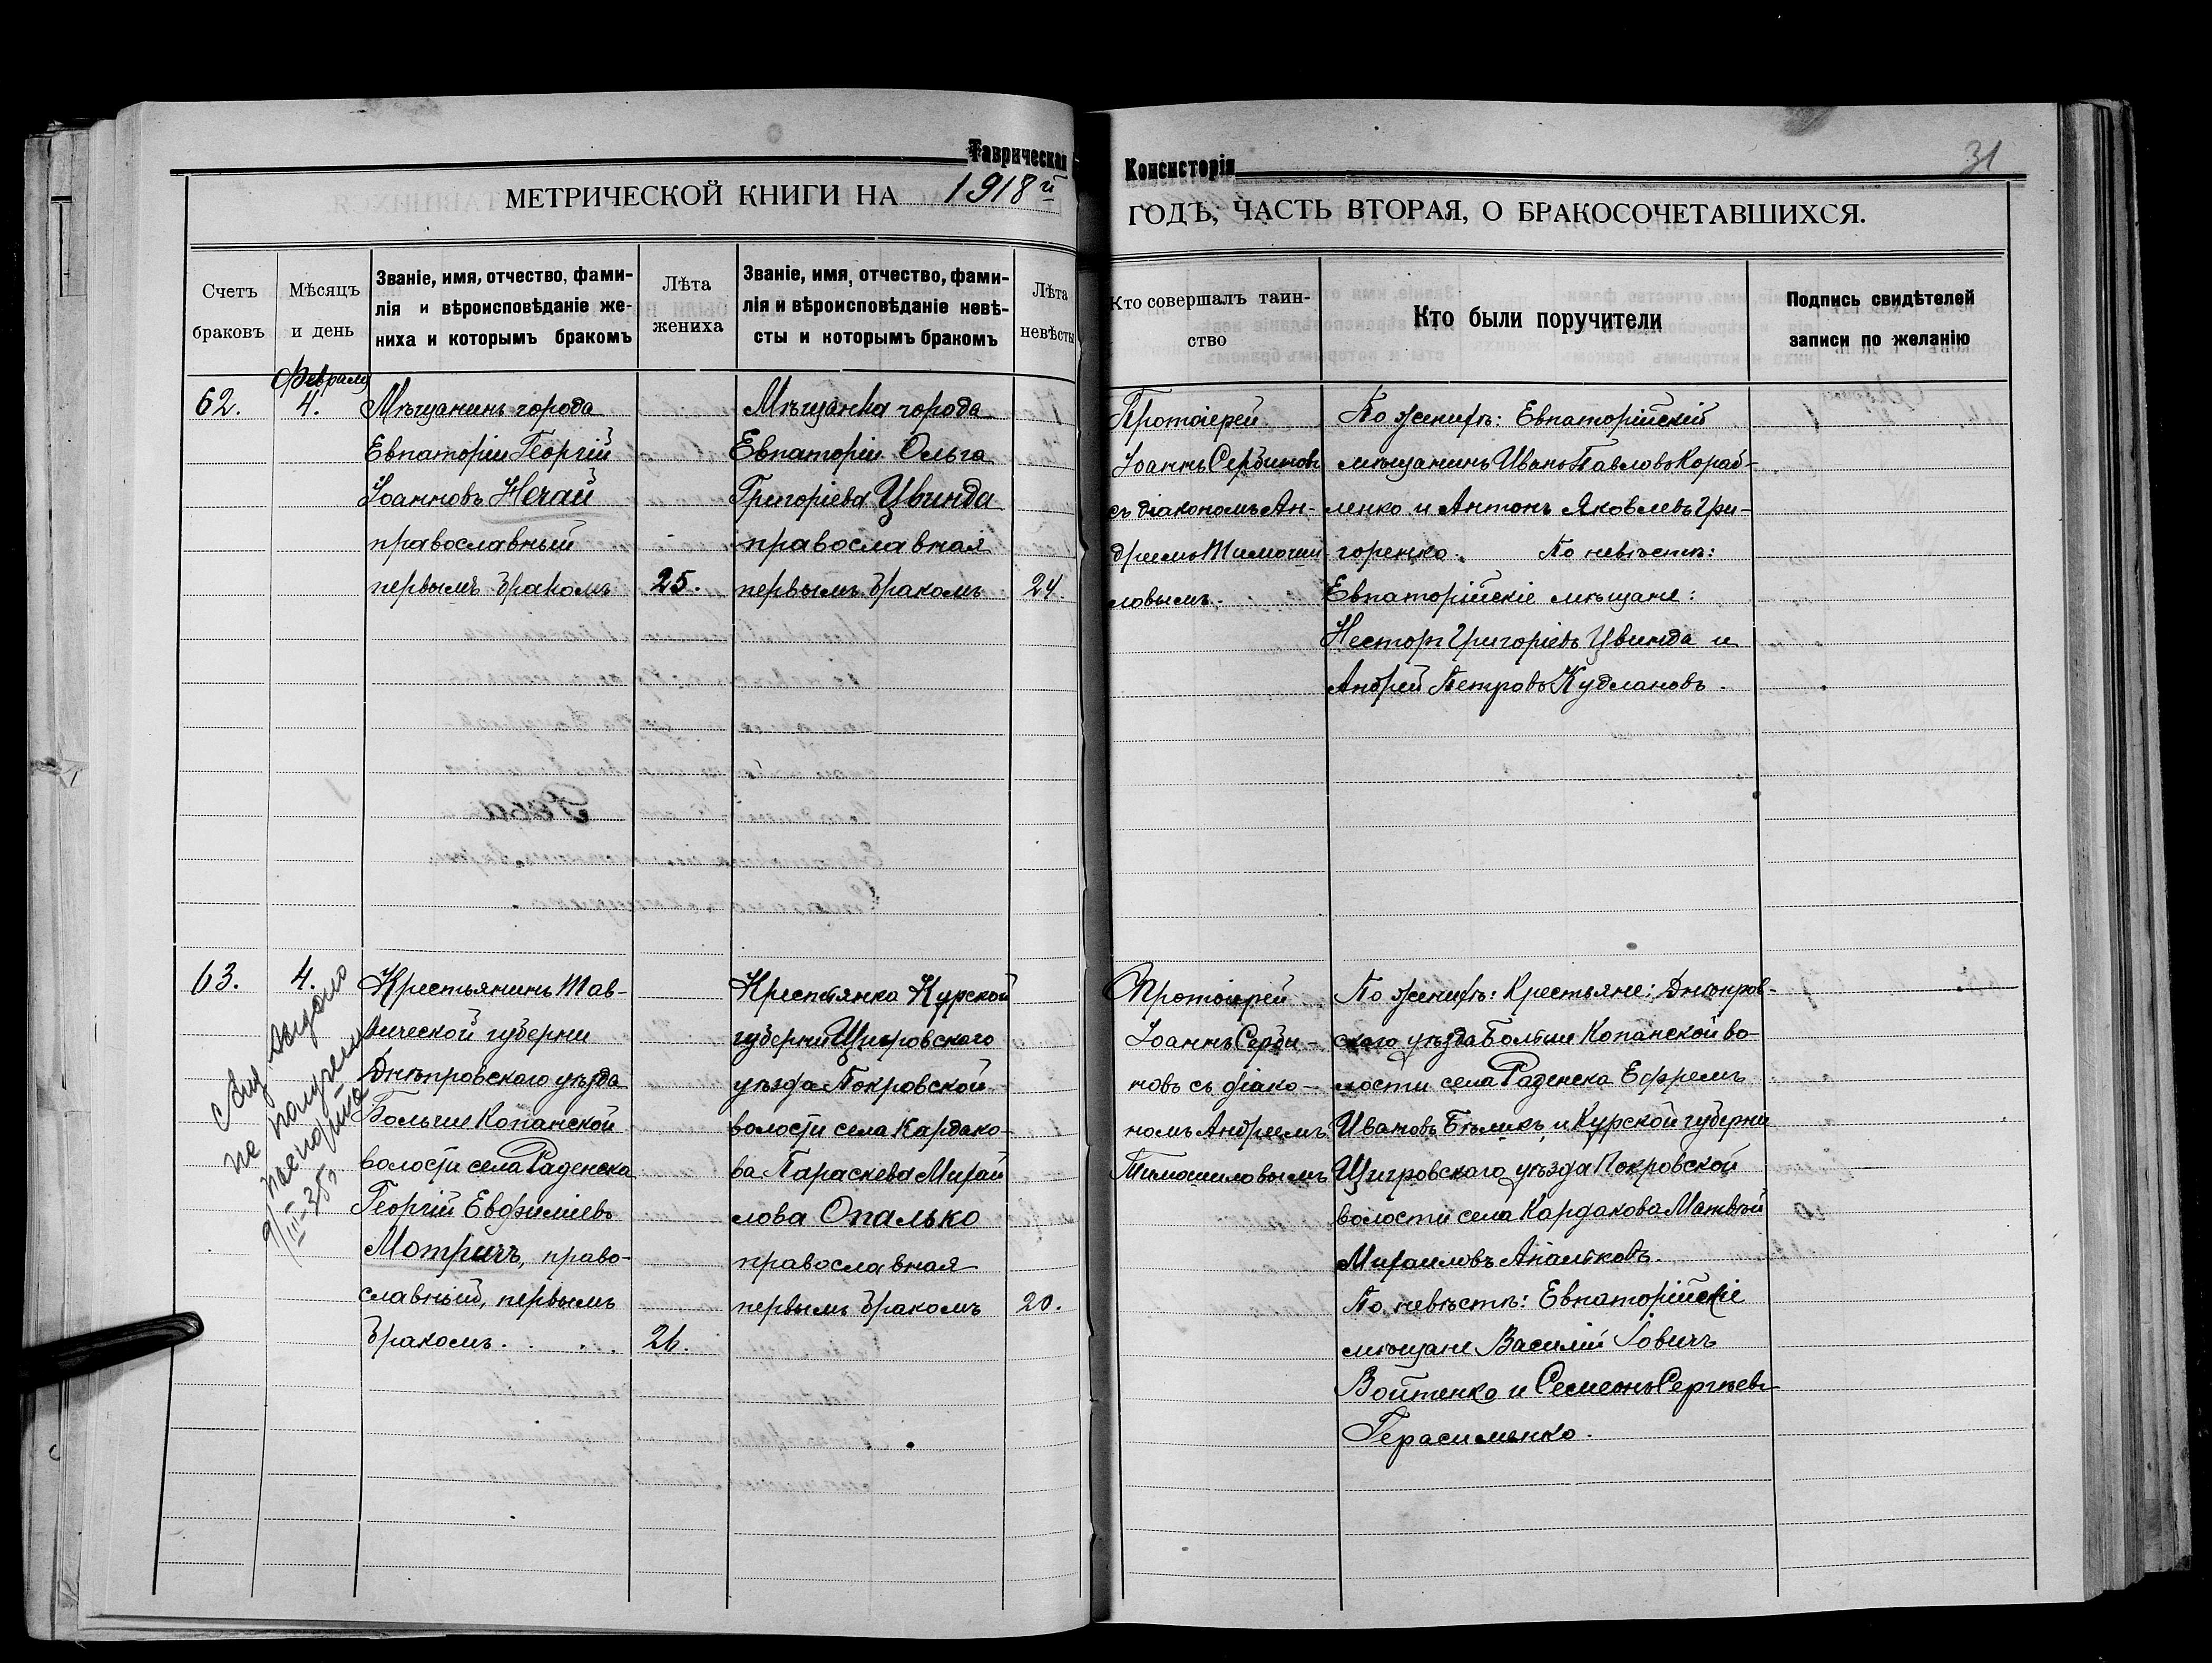 Таврическая
Консисторія
31
МЕТРИЧЕСКОЙ КНИГИ НА 1918й
ГОДЪ, ЧАСТЬ ВТОРАЯ, О БРАКОСОЧЕТАВШИХСЯ.
Счетъ
браковъ
Мѣсяцъ
и день
Званіе, имя, отчество, фами-
лія и вѣроисповѣданіе же-
ниха и которымъ бракомъ
Лѣта
жениха
Званіе, имя, отчество, фами-
лія и вѣроисповѣданіе невѣ-
сты и которымъ бракомъ
Лѣта
невѣсты
Кто совершалъ таин-
ство
Кто были поручители
Подпись свидѣтелей
записи по желанію
62.
Февраля
4.
Мѣщанинъ города
Евпаторіи Георгій
Іоанновъ Нечай
православный
первымъ бракомъ
25.
Мѣщанка города
Евпаторіи Ольга
Григоріева Цвинда
православная
первымъ бракомъ
24.
Протоіерей
Іоаннъ Сербиновъ
съ діакономъ Ан-
дреемъ Тимоши-
ловымъ.
По женихѣ: Евпаторійскій
мѣщанинъ Иванъ Павловъ Кораб-
ленко и Антонъ Яковлевъ Гри-
горенко. По невѣстѣ:
Евпаторійскіе мѣщане:
Несторъ Григоріевъ Цвинда и
Андрей Петровъ Кудлановъ.
63.
4.
не получены
9/III-35г
Крестьянинъ Тав-
рической губерни
Днѣпровскаго уѣзда
Больше Копанской
волости села Раденска
Георгій Евфиміевъ
Мотричъ, право-
славный, первымъ
бракомъ.
26.
Крестьянка Курской
губерни Щигровскаго
уѣзда Покровской
волости села Кардако-
ва Параскева Михай
лова Опалько
православная
первымъ бракомъ
20.
Протоіерей
Іоаннъ Серби-
новъ съ діако-
номъ Андреемъ
Тимошиловымъ
По женихѣ: Крестьяне: Днѣпров-
скаго уѣзда Больше Копанской во-
лости села Раденска Ефремъ
Ивановъ Бѣликъ, и Курской губерни
Щигровскаго уѣзда Покровской
волости села Кардакова Матвѣй
Михаиловъ Апальковъ.
По невѣстѣ: Евпаторійскіе
мѣщане Василій Іовичъ
Войтенко и Семеонъ Сергѣевъ
Герасименко.